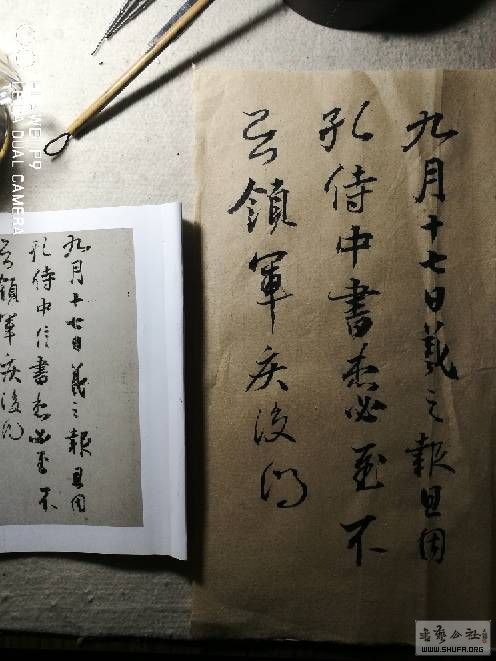 九月十七日羲之報且因
孔侍中書想必至不
知領軍疾後問
九月十七日羲之報且因
孔侍中信書想必至不
知領軍疾後問
HUAWEI P9
LEICA DUAL CAMERA
书艺公社
WWW.SHUFA.ORG